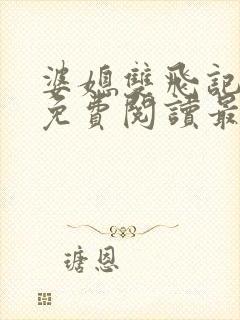 婆媳雙飛記
免費閱讀最
瑭恩